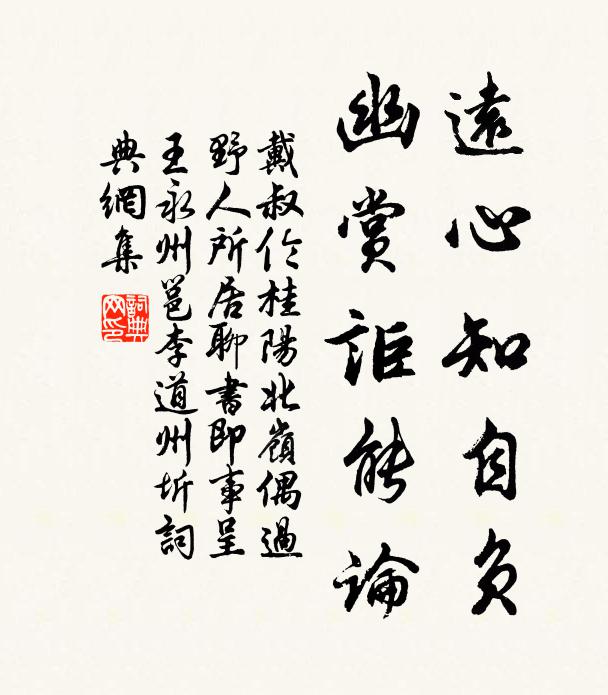 遠心知自負
幽賞詎能論
戴叔倫桂陽北嶺偶過
野人所居聊書即事呈
王永州邕李道州圻詞
典網集
詞典網印